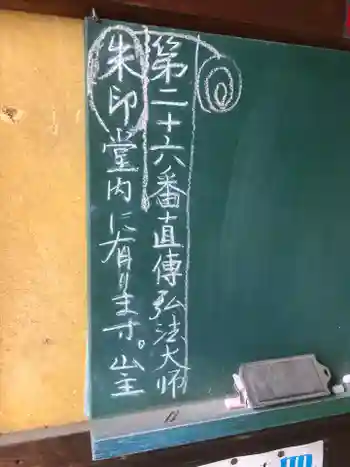 第二十六番直傳弘法大師
朱印堂内に有ります。山主